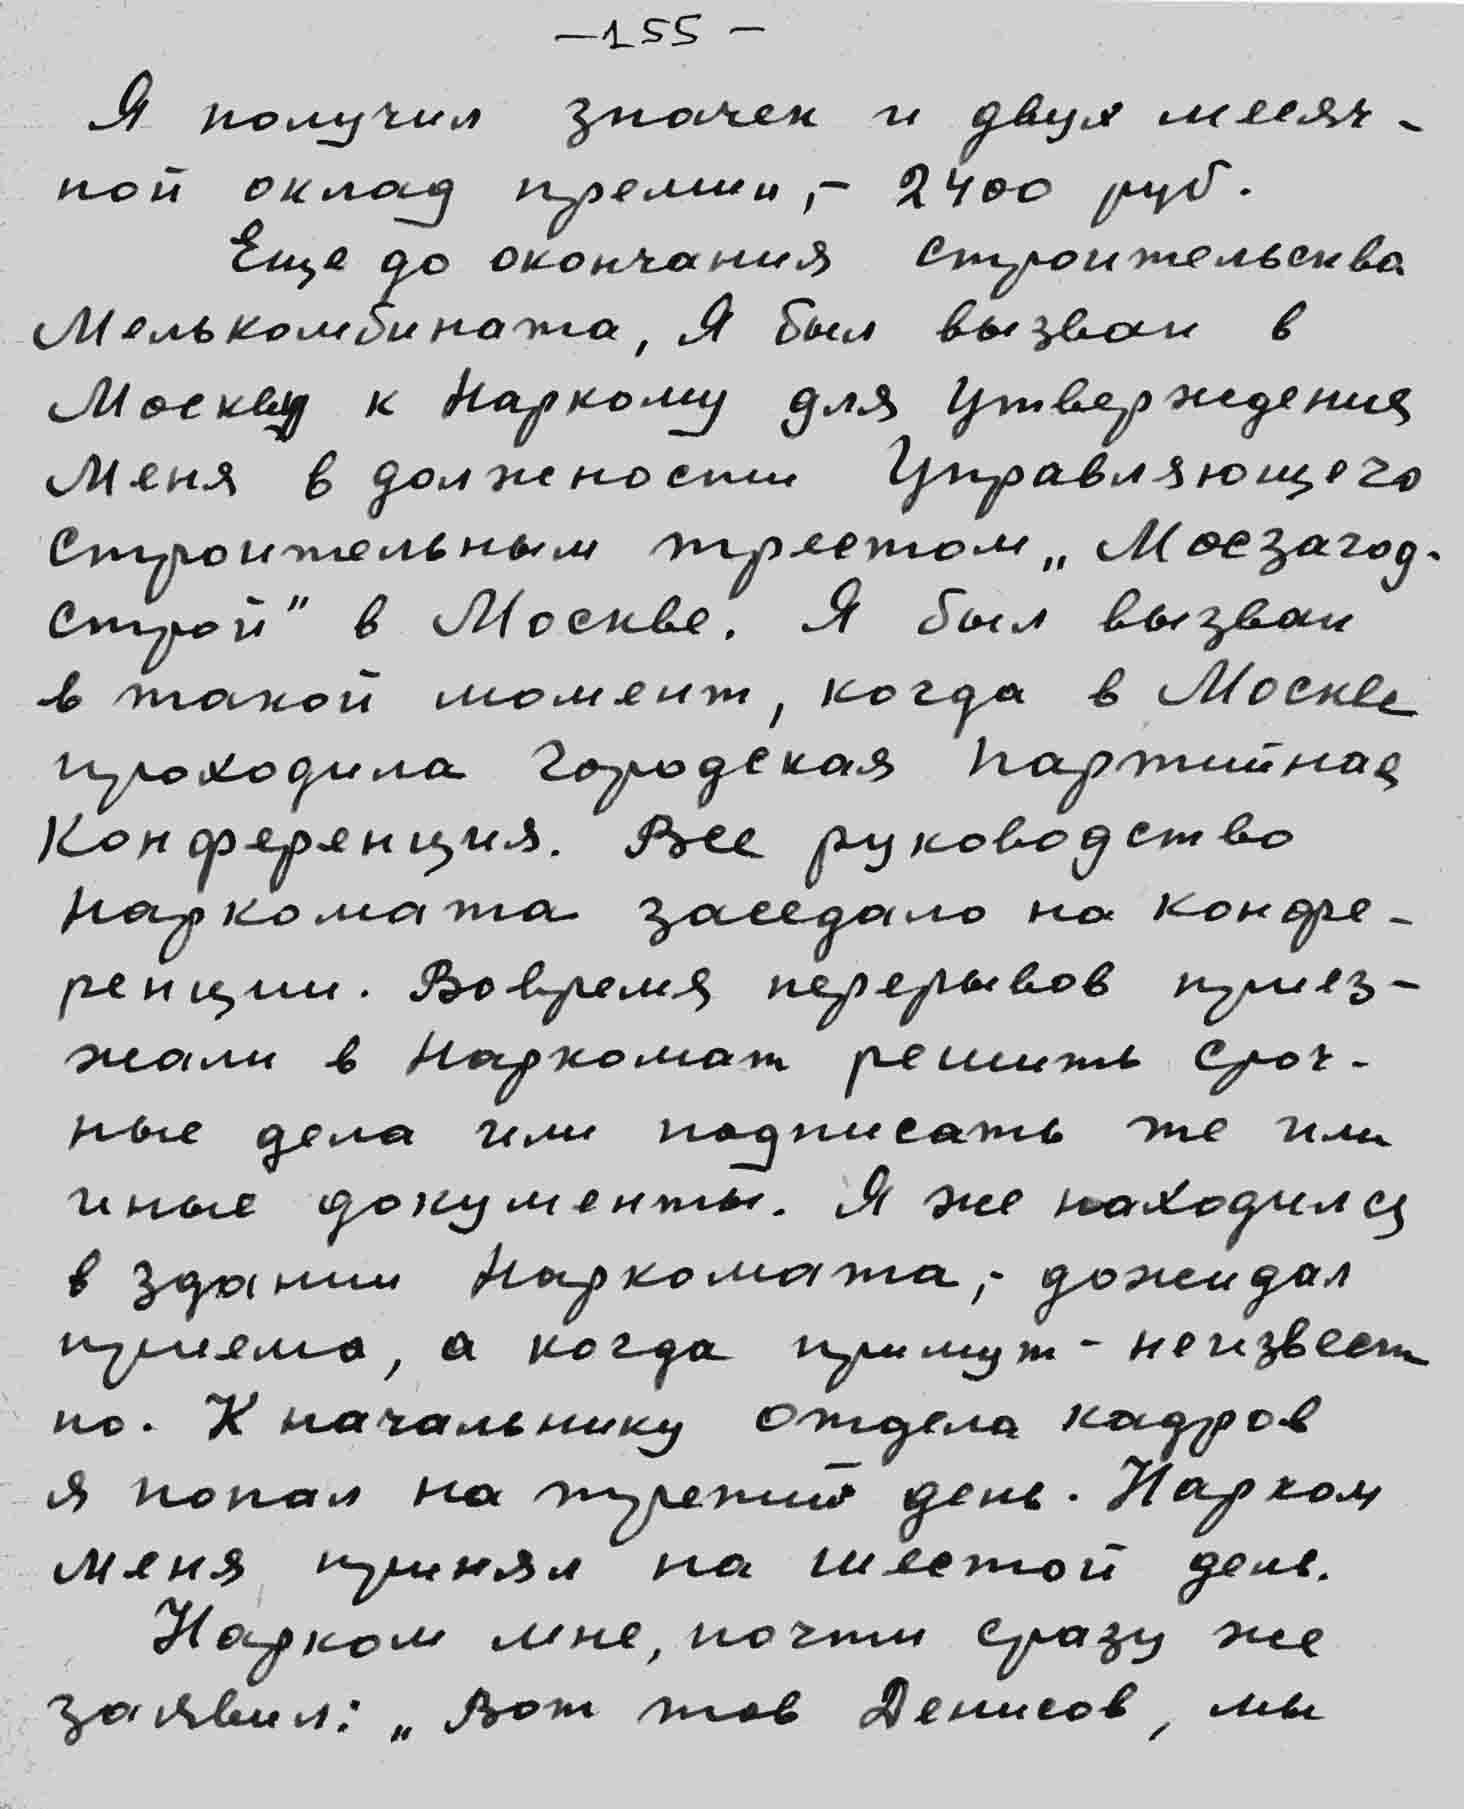 –155–
Я получил значек и двух месяч-
ной оклад премии,- 2400 руб.
Еще до окончания строительсква
Мелькомбината, Я был вызван в
Москву к Наркому для утверждения
меня в должности Управляющего
строительным трестом „Мосзагод-
строй" в Москве. Я был вызван
в такой момент, когда в Москве
проходила городская партийная
Конференция. Все руководство
Наркомата заседало на конфе-
ренции. Вовремя перерывов приез-
жали в Наркомат решить сроч-
ные дела или подписать те или
иные документы. Я же находился
в здании Наркомата,- дожидал
приема, а когда примут - неизвест
но. К начальнику отдела кадров
я попал на третий день. Нарком
меня принял на шестой день.
Нарком мне, почти сразу же
заявил: „Вот тов Денисов, мы